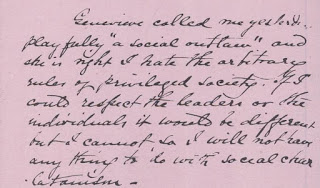 Genevieve called me yesterday
playfully "a social outlaw" and
she is right I hate the arbitrary
rules of privileged society. If I
could respect the leaders or the
individuals it would be different
but I cannot, so I will not have
any thing to do with social char
latanism -